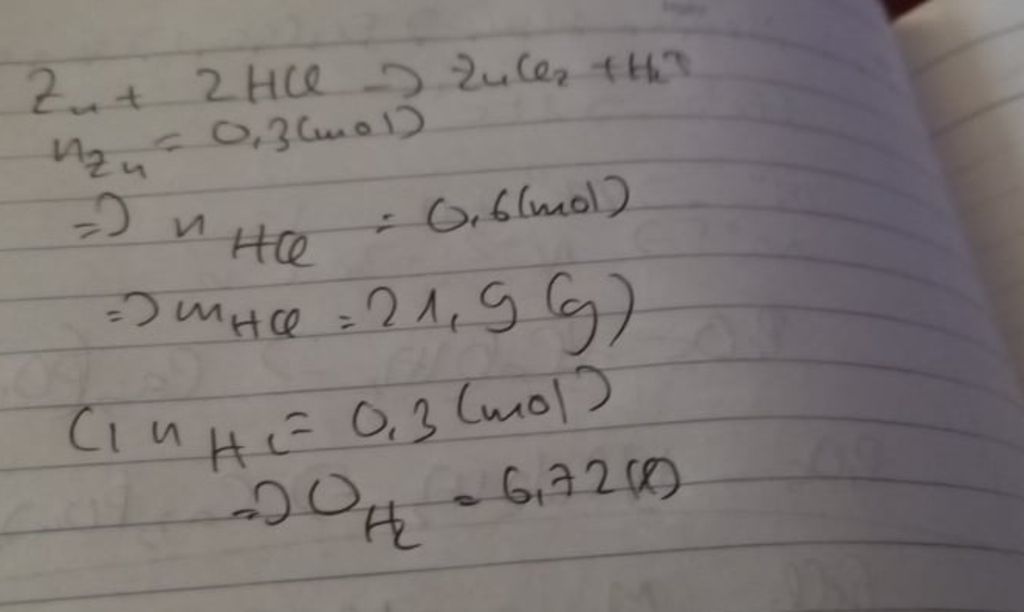 Zn + 2HCl => ZnCl2 + H2↑
nZn = 0,3(mol)
=> nHCl = 0,6(mol)
=> mHCl = 21,9(g)
C) nH2 = 0,3(mol)
=> VH2 = 6,72(l)